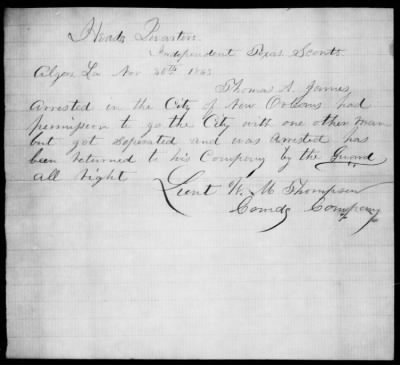 Head Quarters
Independent Texas Scouts
Algiers La Nov 30th 1863
Thomas A. James
Arrested in the City of New Orleans had
permission to go the City with one other man
but got seperated and was Arrested has
been returned to his Company by the Guard
all right
Lieut W. M Thompson
Comdg Company